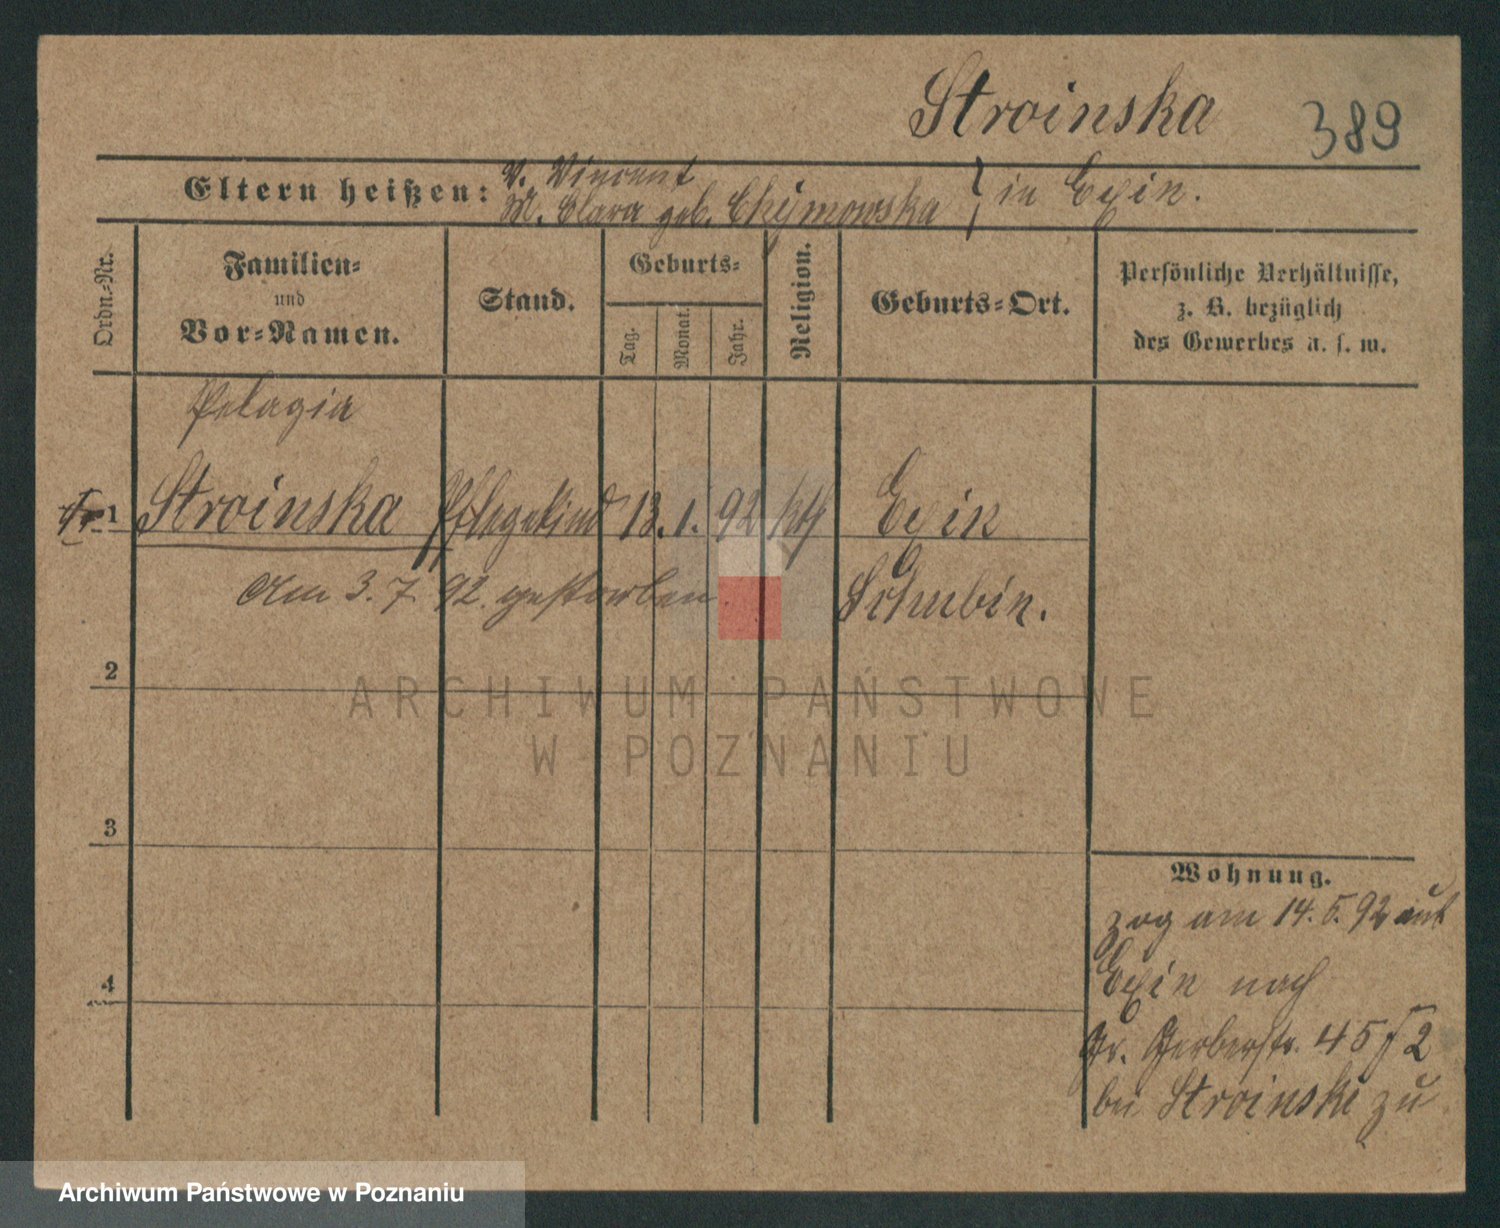 Stroinska
389
Eltern heißen:
V. Vincent
M. Clara geb. Chijmowska } in Exin.
Ordn.-Nr.
Familien-
und
Vor-Namen.
Stand.
Geburts-
Tag.
Monat.
Jahr.
Religion.
Geburts-Ort.
Persönliche Verhältnisse,
z. B. bezüglich
des Gewerbes u. s. w.
Pelagia
1 Stroinska Pflegekind 13. 1. 92 kth Exin
Am 3. 7. 92. gestorben. Schubin.
2
3
4
Wohnung.
zog am 14. 5. 92 aus
Exin nach
Gr. Gerberstr. 45 2
bei Stroinski zu
ARCHIWUM PAŃSTWOWE
W POZNANIU
Archiwum Państwowe w Poznaniu